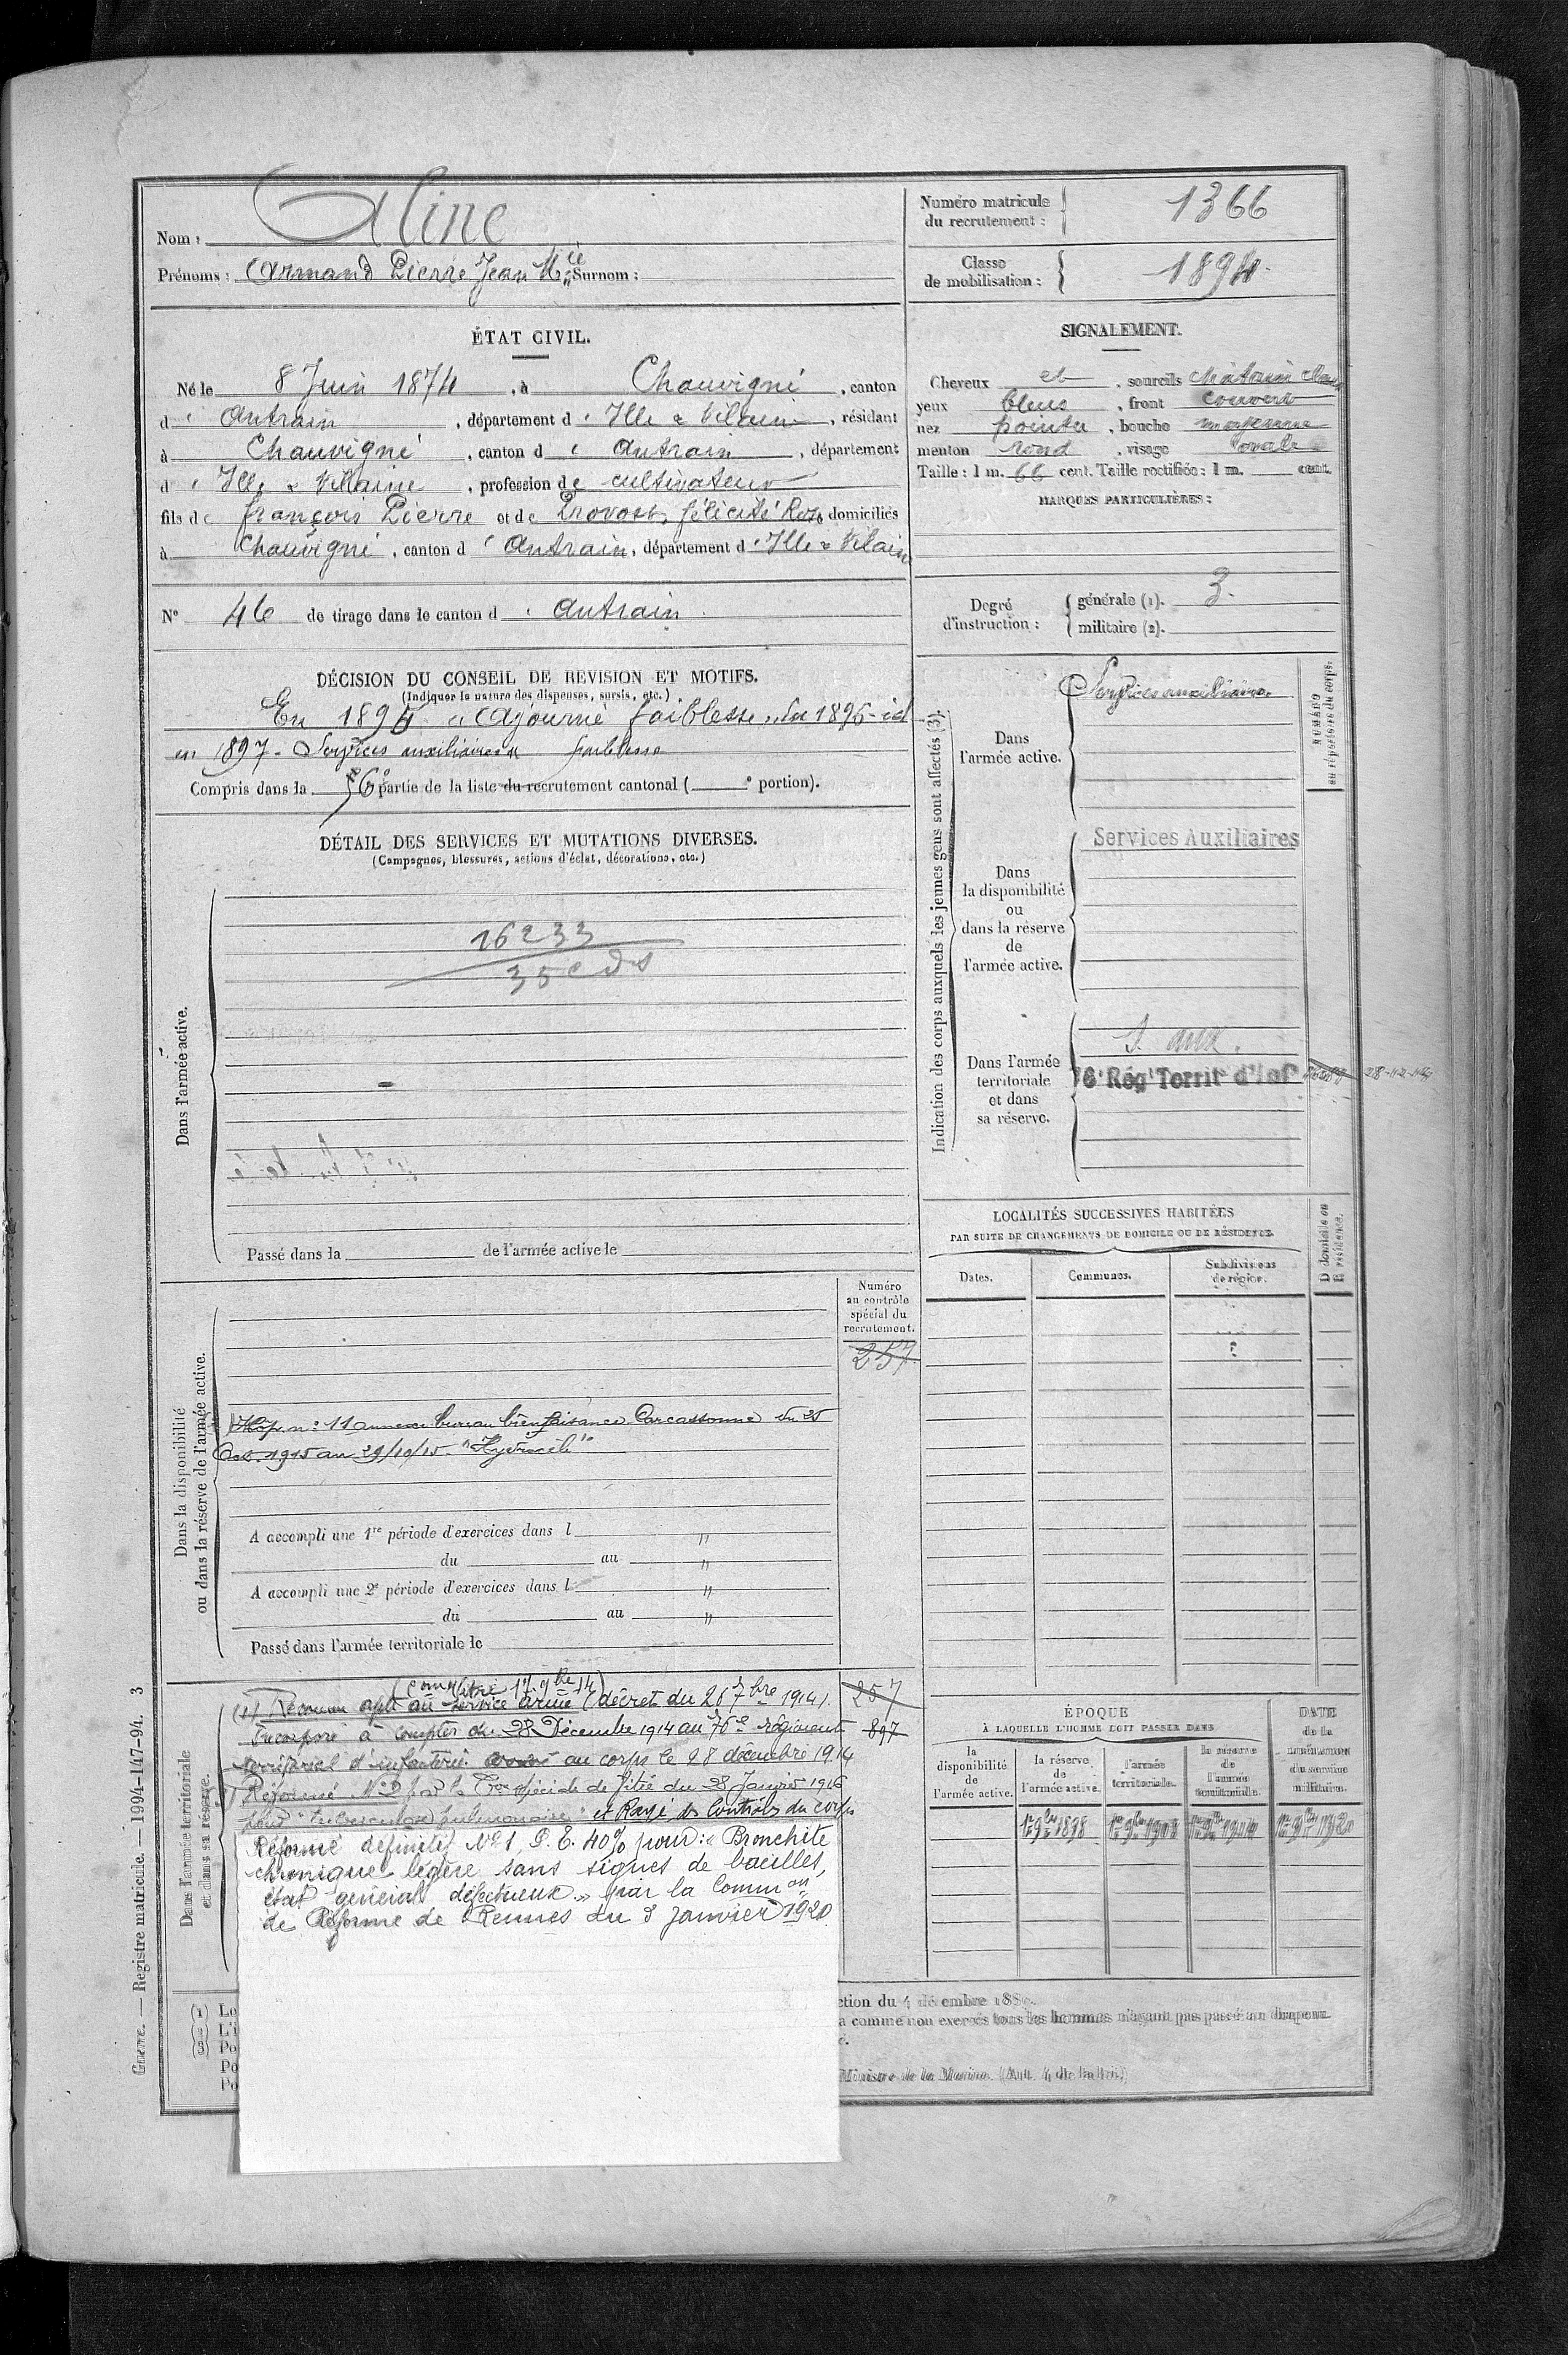 Nom : Aline
Prénoms : Armand Pierre Jean Mie Surnom :
Numéro matricule du recrutement : 1366
Classe de mobilisation : 1894
ÉTAT CIVIL.
Né le 8 Juin 1874, à Chauvigné, canton
d' Antrain, département d' Ille & Vilaine, résidant
à Chauvigné, canton d' Antrain, département
d' Ille & Vilaine, profession de cultivateur
fils de françois Pierre et de Provost, félicité Rose domiciliés
à Chauvigné, canton d' Antrain, département d' Ille & Vilaine
N° 46 de tirage dans le canton d' Antrain.
SIGNALEMENT.
Cheveux et, sourcils châtain clair
yeux bleus, front couvert
nez pointu, bouche moyenne
menton rond, visage ovale
Taille : 1 m. 66 cent. Taille rectifiée : 1 m. cent.
MARQUES PARTICULIÈRES :
Degré d'instruction : générale (1). 3.
militaire (2).
DÉCISION DU CONSEIL DE REVISION ET MOTIFS.
(Indiquer la nature des dispenses, sursis, etc.)
En 1895 "Ajourné faiblesse" En 1896 - id -
en 1897 - Services auxiliaires faiblesse
Compris dans la 6e partie de la liste du recrutement cantonal ( e portion).
DÉTAIL DES SERVICES ET MUTATIONS DIVERSES.
(Campagnes, blessures, actions d'éclat, décorations, etc.)
Dans l'armée active.
16233
Passé dans la de l'armée active le
Indication des corps auxquels les jeunes gens sont affectés (3).
NUMÉRO au répertoire du corps.
Dans l'armée active.
Services auxiliaires
Dans la disponibilité ou dans la réserve de l'armée active.
Services Auxiliaires
Dans l'armée territoriale et dans sa réserve.
S. aux.
76e Rég Territ d'Inf 28-12-14
LOCALITÉS SUCCESSIVES HABITÉES
PAR SUITE DE CHANGEMENTS DE DOMICILE OU DE RÉSIDENCE.
Dates. Communes. Subdivisions de région. D domicile ou R résidence.
Dans la disponibilité ou dans la réserve de l'armée active.
Numéro au contrôle spécial du recrutement.
257
Hôp. n: 11 annexe bureau bienfaisance Carcassonne du 25
Oct. 1915 au 29/10/15 "Hydrocèle"
A accompli une 1re période d'exercices dans l "
du au "
A accompli une 2e période d'exercices dans l "
du au "
Passé dans l'armée territoriale le
Dans l'armée territoriale et dans sa réserve.
(Com Vitré 17.9bre 14)
(1) Reconnu apte au service armé (décret du 26 7bre 1914). 257
Incorporé à compter du 28 Décembre 1914 au 76e régiment 897
territorial d'infanterie. arrivé au corps le 28 décembre 1914
Réformé No 2 par la Con spéciale de Vitré du 28 Janvier 1916
pour "tuberculose pulmonaire" et Rayé des Contrôles du corps
Réformé définitif No 1, P. E. 40% pour : "Bronchite
chronique légère sans signes de bacilles,
état général défectueux" par la Common
de Réforme de Rennes du 5 janvier 1920
ÉPOQUE
À LAQUELLE L'HOMME DOIT PASSER DANS
DATE de la libération du service militaire.
la disponibilité de l'armée active. la réserve de l'armée active. l'armée territoriale. la réserve de l'armée territoriale.
1er 9bre 1898 1er 9bre 1908 1er 9bre 1914 1er 9bre 1920
ction du 4 décembre 1889.
a comme non exercés tous les hommes n'ayant pas passé au drapeau
é.
Ministre de la Marine. (Art. 4 de la loi.)
Guerre. — Registre matricule. — 1994-147-94. 3